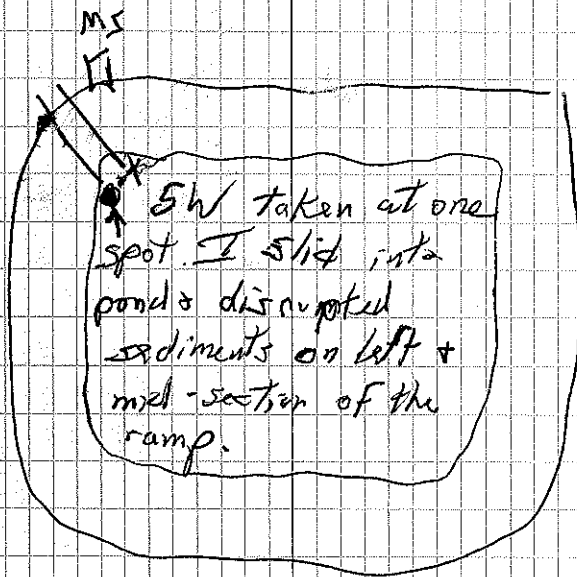 MS
SW taken at one
spot. I slid into
pond & disrupted
sediments on left &
mid-section of the
ramp.